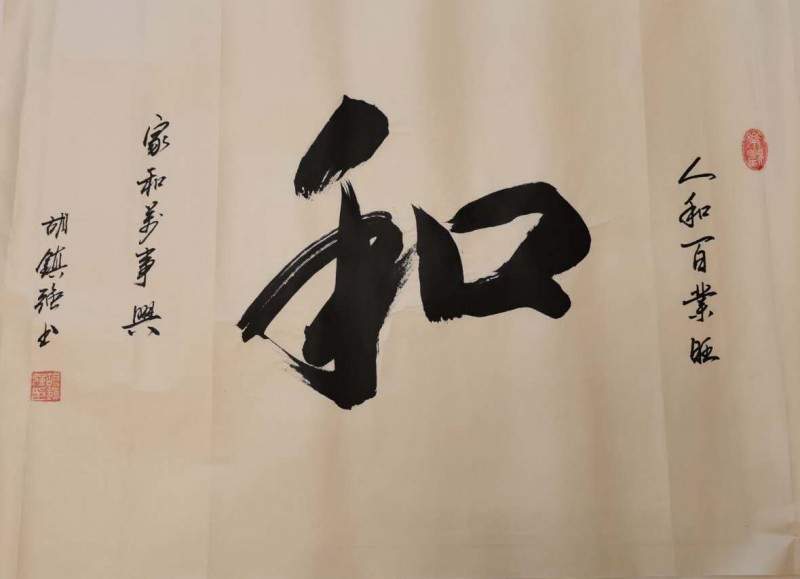 人和百業旺
和
家和萬事興
胡鎮強书